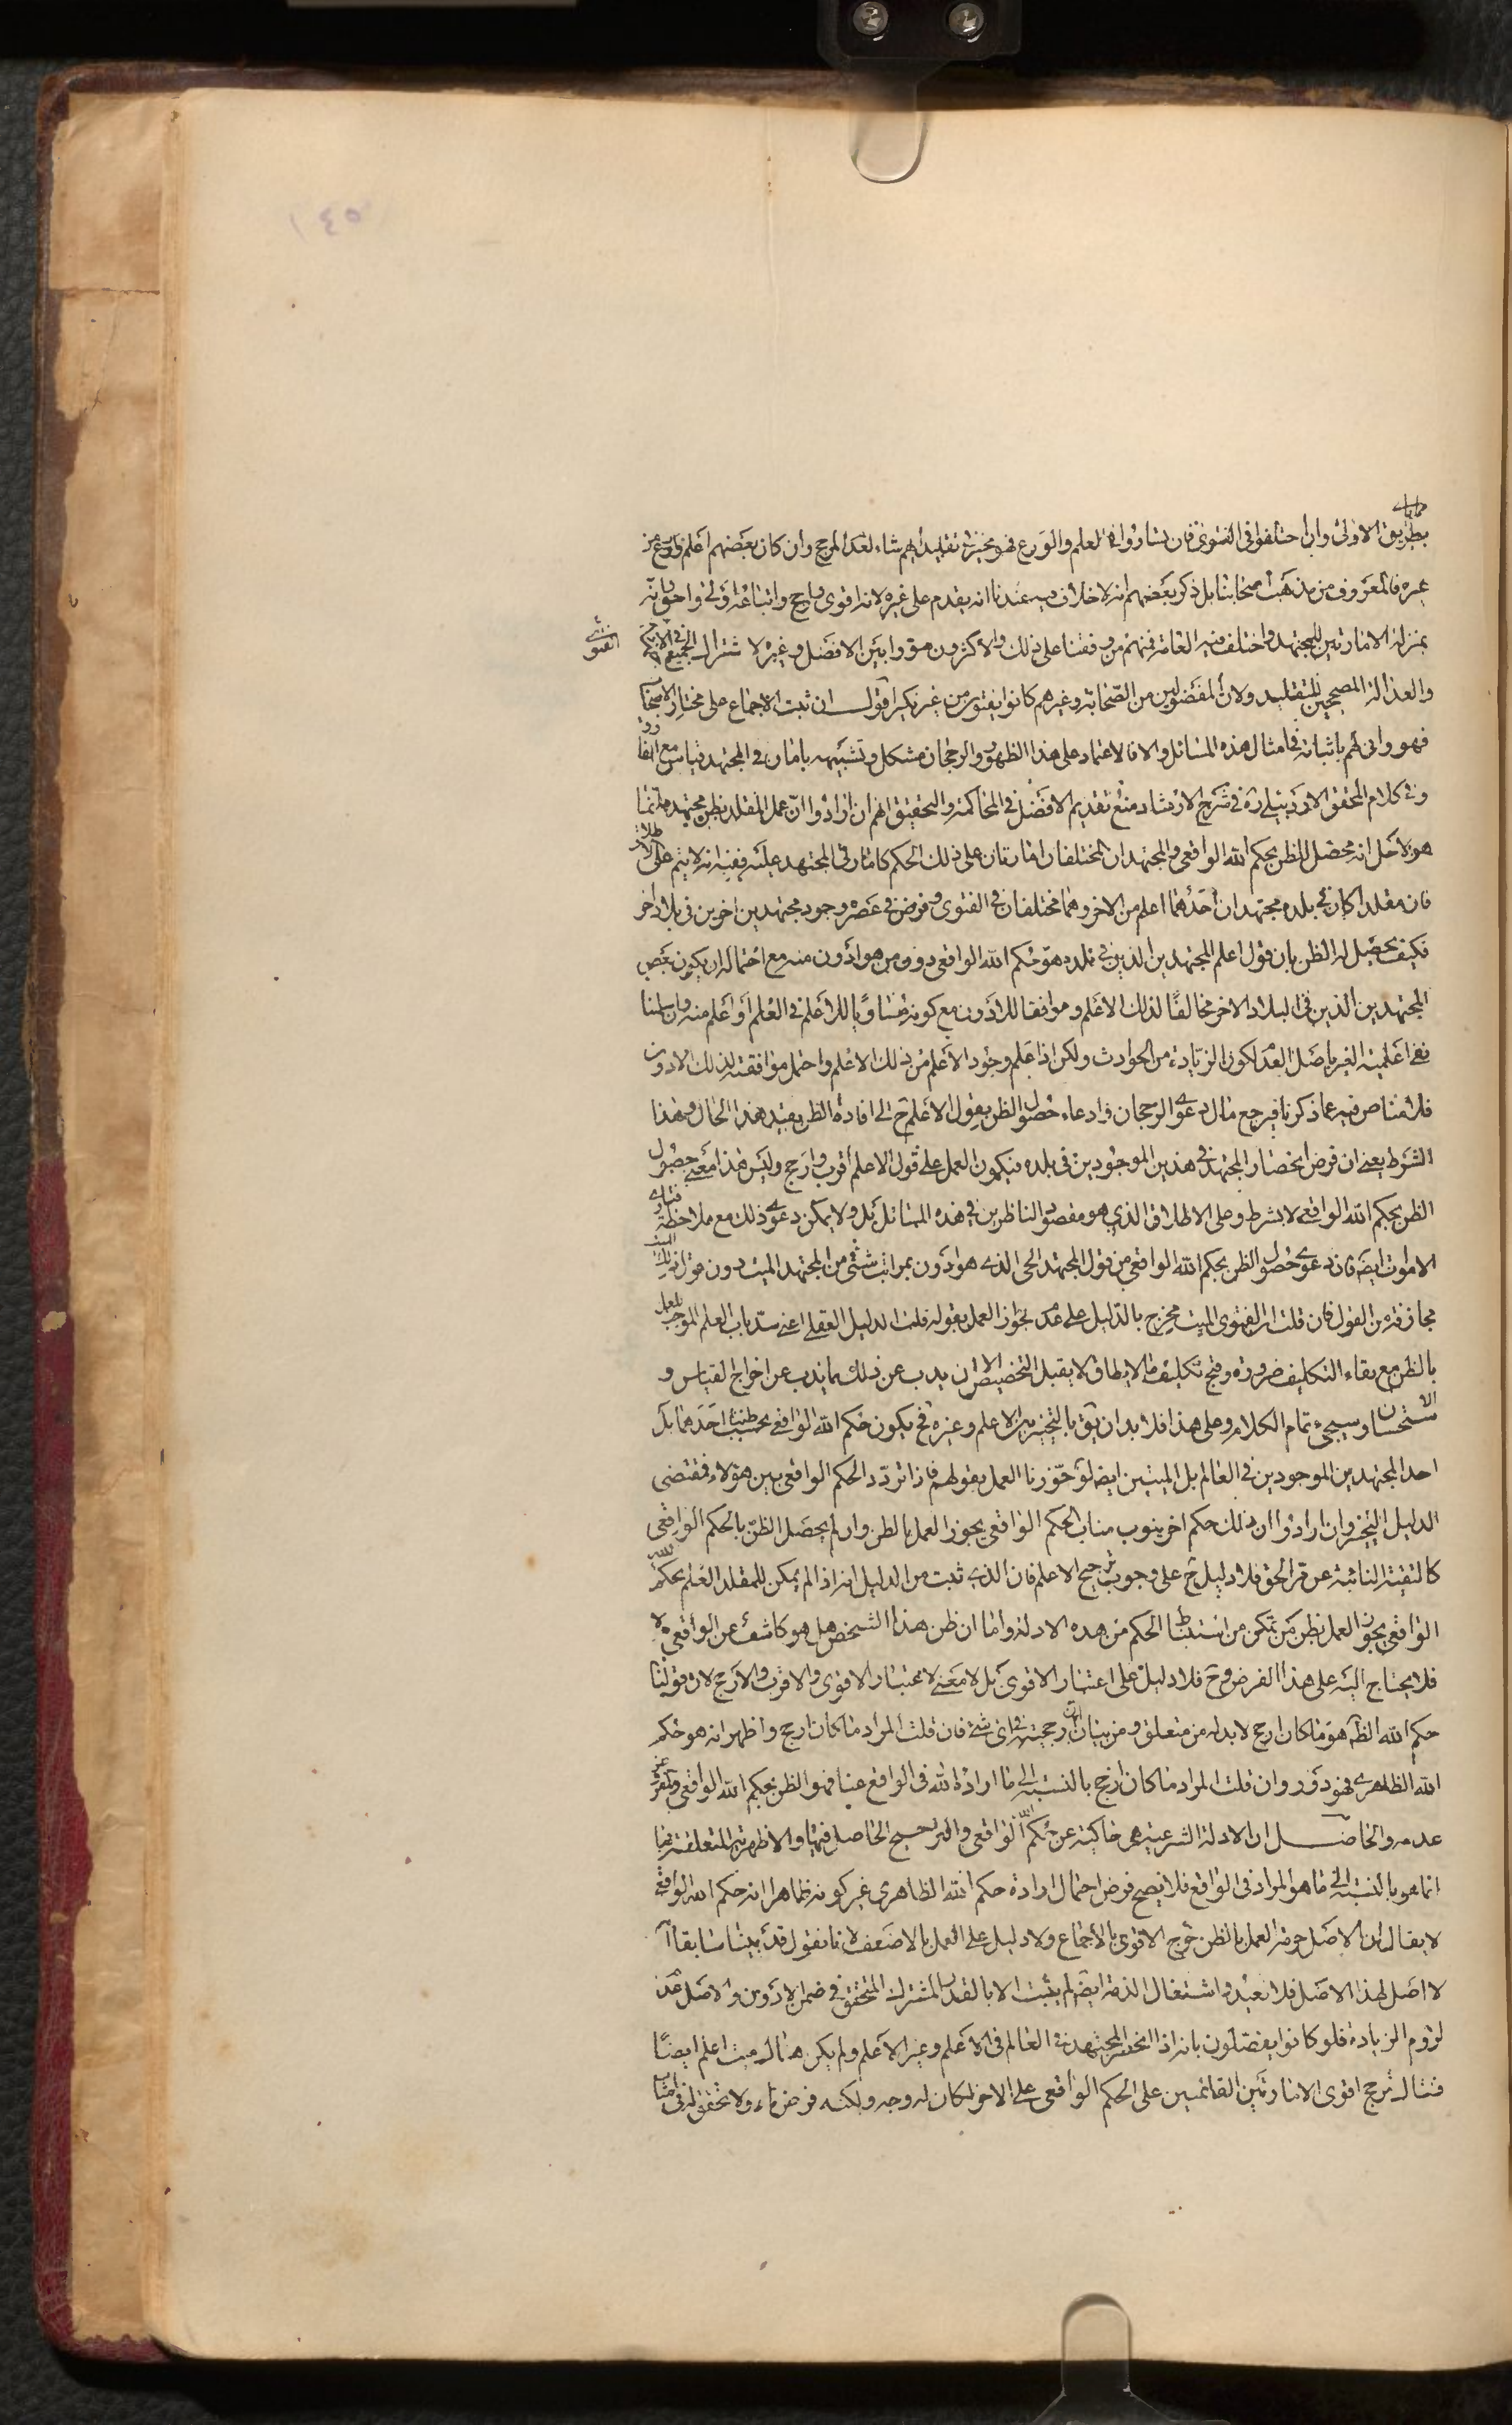 بطريق الاولى وان اختلفوا في الفتوى فان تساووا في العلم والورع فهو مخير في تقليد ايهم شاء لعدم المرجح وان كان بعضهم اعلم واورع من
غيره فالمعروف من مذهب اصحابنا بل ذكر بعضهم انه لا خلاف فيه عندنا انه يقدم على غيره لانه اقوى وارجح واتباعه اولى واحق وانه
بمنزلة الامارتين للمجتهد واختلف فيه العامة فمنهم من وافقنا على ذلك والاكثرون سووا بين الافضل وغيره لاشتراك الجميع في الاجتهاد
والعدالة المصححين للتقليد ولان المفضولين من الصحابة وغيرهم كانوا يفتون من غير نكير اقول ان ثبت الاجماع على مختار الاصحاب
فهو وانى لهم باثباته في امثال هذه المسائل والا فالاعتماد على هذا الظهور والرجحان مشكل وتشبيهه بامارتي المجتهد قياس مع الفارق
وفي كلام المحقق الاردبيلي ره في شرح الارشاد منع تقديم الافضل في المحاكمة والتحقيق انهم ان ارادوا ان عمل المقلد بظن مجتهده انما
هو لاجل انه محصل للظن بحكم الله الواقعي والمجتهدان المختلفان امارتان على ذلك الحكم كامارتي المجتهد عليه ففيه انه لا يتم على الاطلاق
فان مقلدا كان في بلده مجتهدان احدهما اعلم من الاخر وهما مختلفان في الفتوى وفرض في عصره وجود مجتهدين اخرين في بلاد اخر
فكيف يحصل له الظن بان قول اعلم المجتهدين الذين في بلده هو حكم الله الواقعي دون من هو ادون منه مع احتمال ان يكون بعض
المجتهدين الذين في البلاد الاخر مخالفا لذلك الاعلم وموافقا للادون مع كونه مساويا للاعلم في العلم او اعلم منه وان سلمنا
نفي اعلمية الغير باصل العدم لكون الزيادة من الحوادث ولكن اذا علم وجود الاعلم من ذلك الاعلم واحتمل موافقته لذلك الادون
فلا مناص فيه عما ذكرنا فيرجع مال دعوى الرجحان وادعاء حصول الظن بقول الاعلم ح الى افادة الظن بقيد هذا الحال وبهذا
الشرط يعني ان فرض انحصار المجتهد في هذين الموجودين في بلده فيكون العمل على قول الاعلم اقرب وارجح وليس هذا معنى حصول
الظن بحكم الله الواقعي لا بشرط وعلى الاطلاق الذي هو مقصود الناظرين في هذه المسائل بل ولا يمكن دعوى ذلك مع ملاحظة فتاوى
الاموات ايضا فان دعوى حصول الظن بحكم الله الواقعي من قول المجتهد الحي الذي هو ادون بمراتب شتى من المجتهد الميت دون قول ذلك الميت
مجازفة من القول فان قلت ان الفتوى الميت مخرج بالدليل على عدم جواز العمل بقوله قلت الدليل العقلي اعني سد باب العلم الموجب للعمل
بالظن مع بقاء التكليف ضرورة وقبح تكليف ما لا يطاق لا يقبل التخصيص الا ان يذب عن ذلك بما يذب عن اخراج القياس و
الاستحسان وسيجيء تمام الكلام وعلى هذا فلا بد ان يق بالتخيير بين الاعلم وغيره فح يكون حكم الله الواقعي بحسب ظننا احدهما بل
احد المجتهدين الموجودين في العالم بل الميتين ايضا لو جوزنا العمل بقولهم فاذا تردد الحكم الواقعي بين هؤلاء فمقتضى
الدليل التخيير وان ارادوا ان ذلك حكم اخر ينوب مناب الحكم الواقعي يجوز العمل بالظن وان لم يحصل الظن بالحكم الواقعي
كالتقية النائبة عن مر الحق فلا دليل ح على وجوب ترجيح الاعلم فان الذي ثبت من الدليل انه اذا لم يمكن للمقلد العلم بحكم الله
الواقعي يجوز العمل بظن من تمكن من استنباط الحكم من هذه الادلة واما ان ظن هذا الشخص هل هو كاشف عن الواقعي ام لا
فلا يحتاج اليه على هذا الفرض وح فلا دليل على اعتبار الاقوى بل لا معنى لاعتبار الاقوى والاقرب والارجح لان قولنا
حكم الله الظاهر هو ما كان ارجح لا بد له من متعلق ومن بيان ان ارجحيته في اي شيء فان قلت المراد ما كان ارجح واظهر انه هو حكم
الله الظاهري فهو دور وان قلت المراد ما كان ارجح بالنسبة الى ما اراده الله في الواقع عنا فهو الظن بحكم الله الواقعي والمفروض
عدمه والحاصل ان الادلة الشرعية هي حاكية عن حكم الله الواقعي والترجيح الحاصل فيها والاظهرية المتعلقة بها
انما هو بالنسبة الى ما هو المراد في الواقع فلا يصح فرض احتمال ارادة حكم الله الظاهري غير كونه ظاهرا انه حكم الله الواقعي
لا يقال ان الاصل حرمة العمل بالظن خرج الاقوى بالاجماع ولا دليل على العمل بالاضعف لانا نقول قد بينا سابقا
لا اصل لهذا الاصل فلا نعيد واشتغال الذمة ايضا لم يثبت الا بالقدر المشترك المتحقق في ضمن الادون والاصل عدم
لزوم الزيادة فلو كانوا يفصلون بانه اذا انحصر المجتهد في العالم في الاعلم وغير الاعلم ولم يكن هناك ميت اعلم ايضا
فهناك نرجح اقوى الامارتين القائمتين على الحكم الواقعي على الاخر لكان له وجه ولكنه فرض نادر ولا تحقق له في امثال
الفتوى